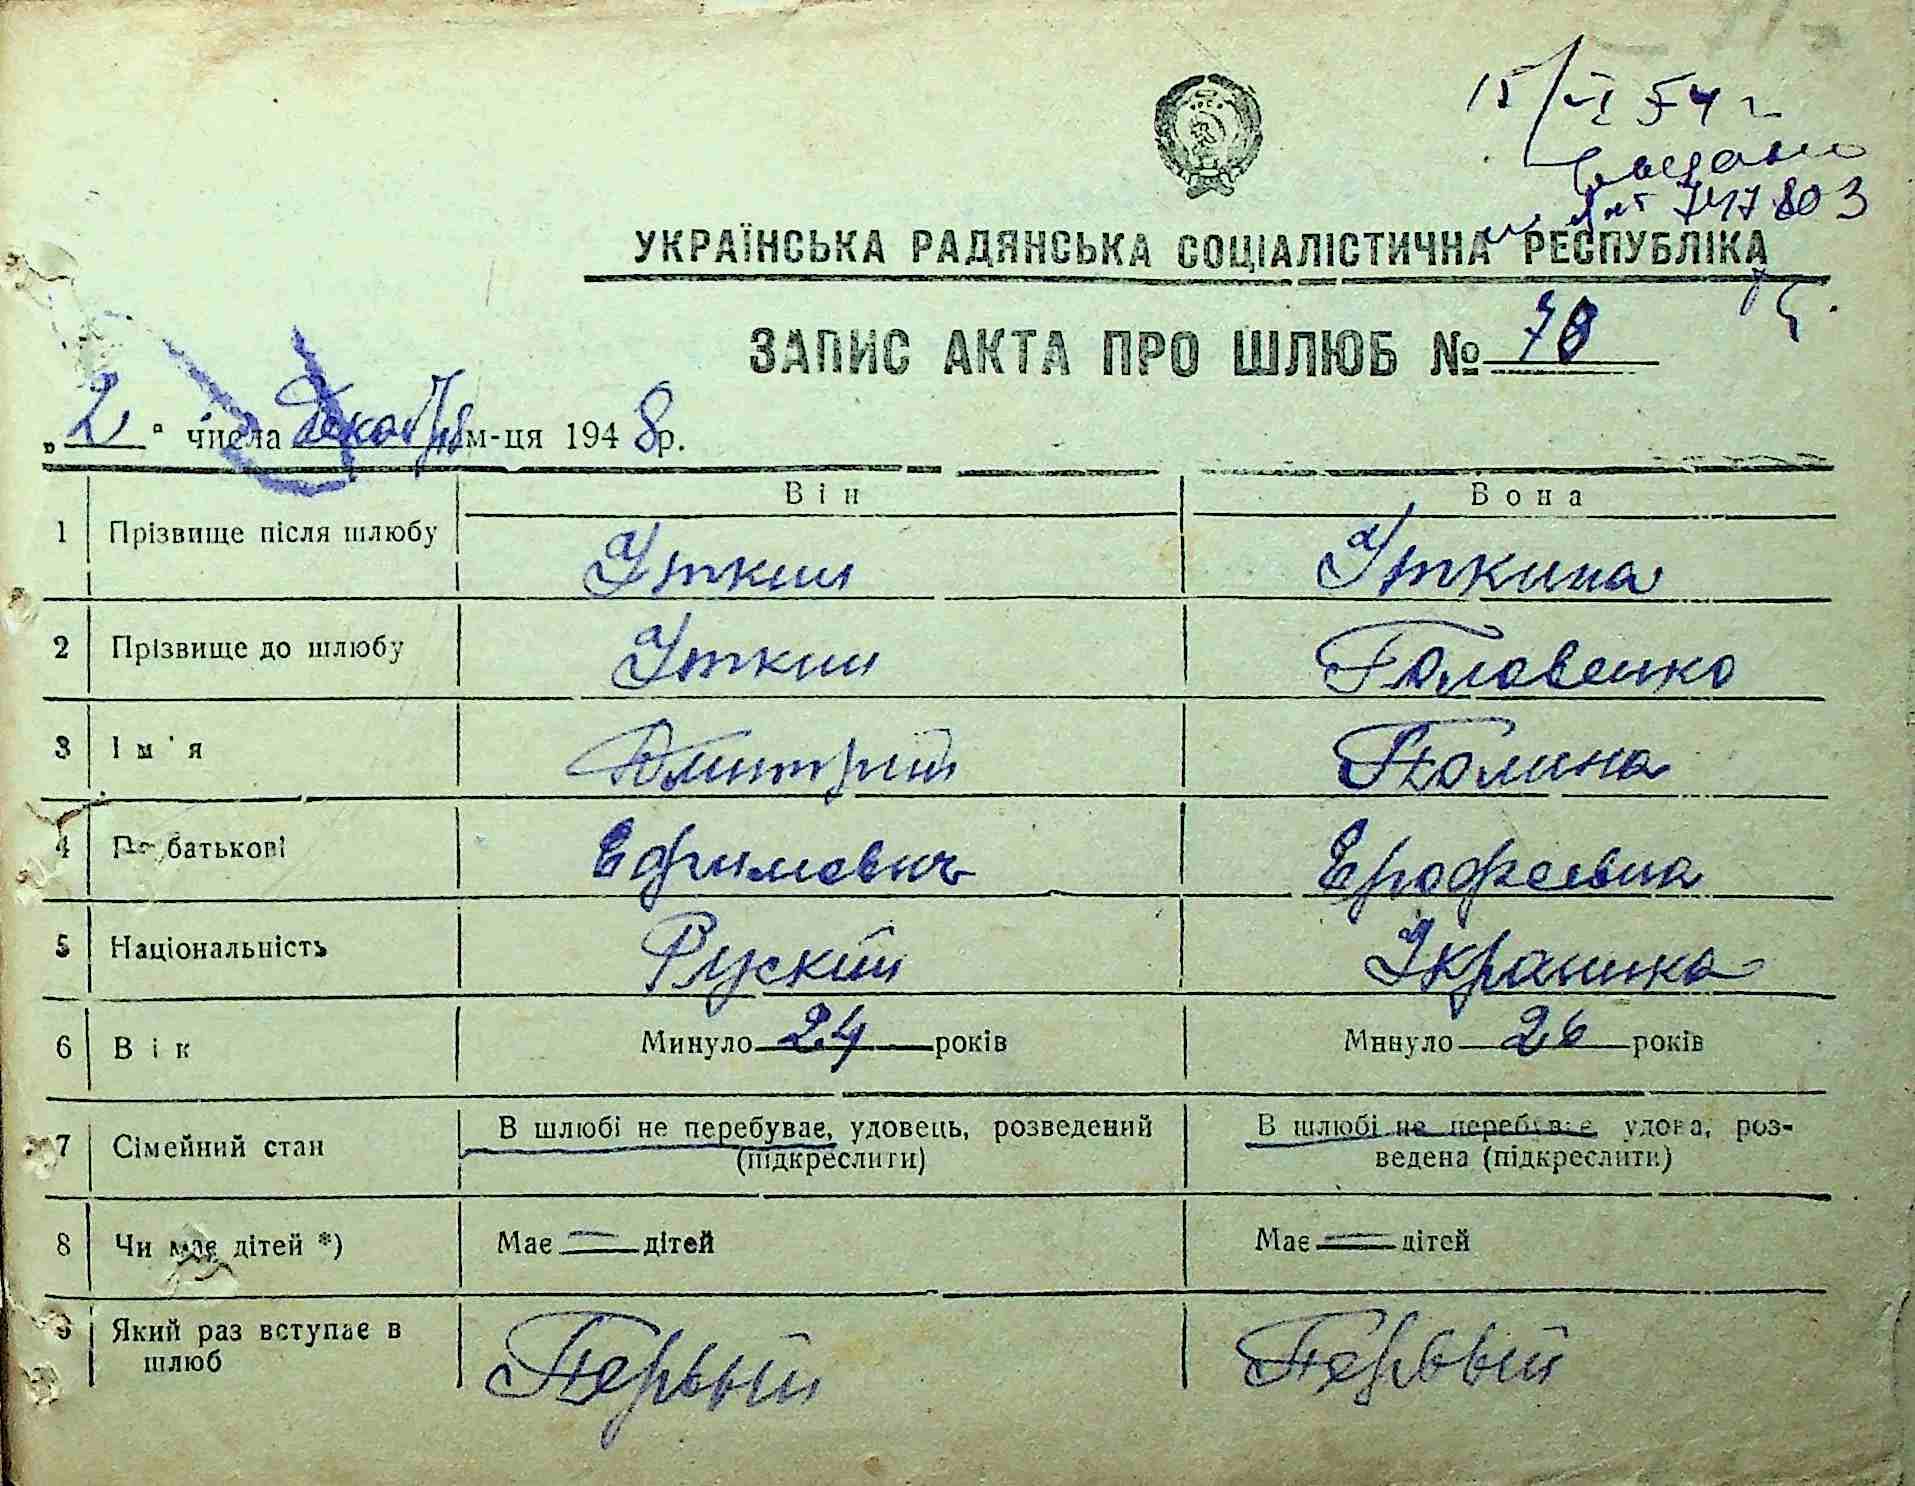 15/VI 54 г
выдано
747803
УКРАЇНСЬКА РАДЯНСЬКА СОЦІАЛІСТИЧНА РЕСПУБЛІКА
ЗАПИС АКТА ПРО ШЛЮБ № 78
„2" числа декабря м-ця 1948 р.
Він Вона
1 Прізвище після шлюбу Уткин Уткина
2 Прізвище до шлюбу Уткин Головенко
3 Ім'я Дмитрий Полина
4 По батькові Ефимович Ерофеевна
5 Національність Руский Украинка
6 Вік Минуло 24 років Минуло 26 років
7 Сімейний стан В шлюбі не перебуває, удовець, розведений В шлюбі не перебуває, удова, роз-
(підкреслити) ведена (підкреслити)
8 Чи має дітей *) Має — дітей Має — дітей
9 Який раз вступає в Первый Первый
шлюб